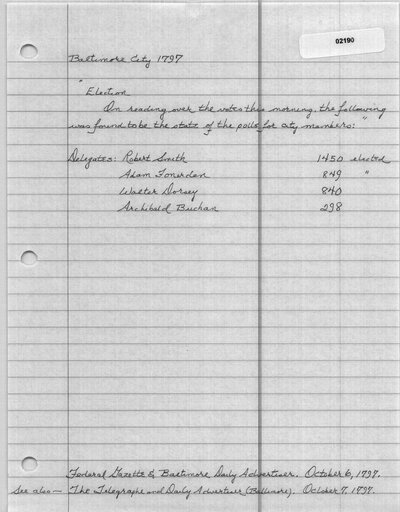 02190
Baltimore City 1797
"Election
On reading over the votes this morning, the following
was found to be the state of the polls for city members:"
Delegates: Robert Smith 1450 elected
Adam Fonerden 849 "
Walter Dorsey 840
Archibald Buchan 298
Federal Gazette & Baltimore Daily Advertiser. October 6, 1797.
See also — The Telegraphe and Daily Advertiser (Baltimore). October 7, 1797.